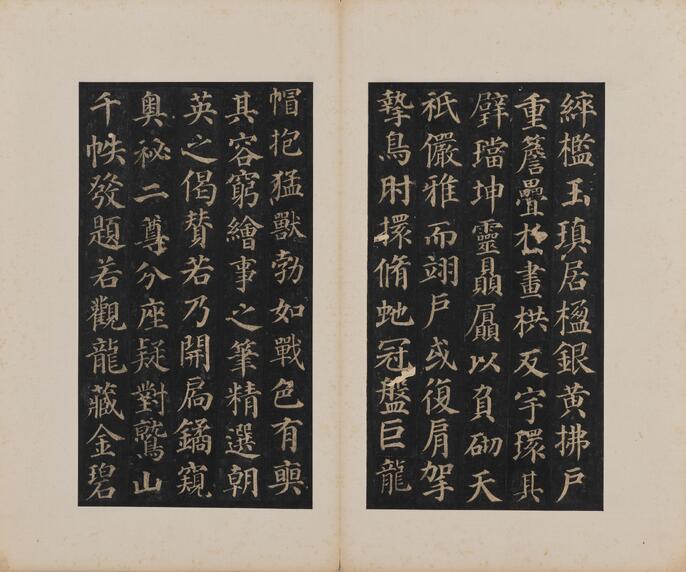 綷檻玉瑱居楹銀黃拂戶
重簷疊扵畫栱反宇環其
璧璫坤靈贔屭以負砌天
祇儼雅而翊戶或復肩挐
摯鳥肘擐脩虵冠盤巨龍
帽抱猛獸勃如戰色有奭
其容窮繪事之筆精選朝
英之偈贊若乃開扃鐍窺
奧祕二尊分座疑對鷲山
千帙發題若觀龍藏金碧